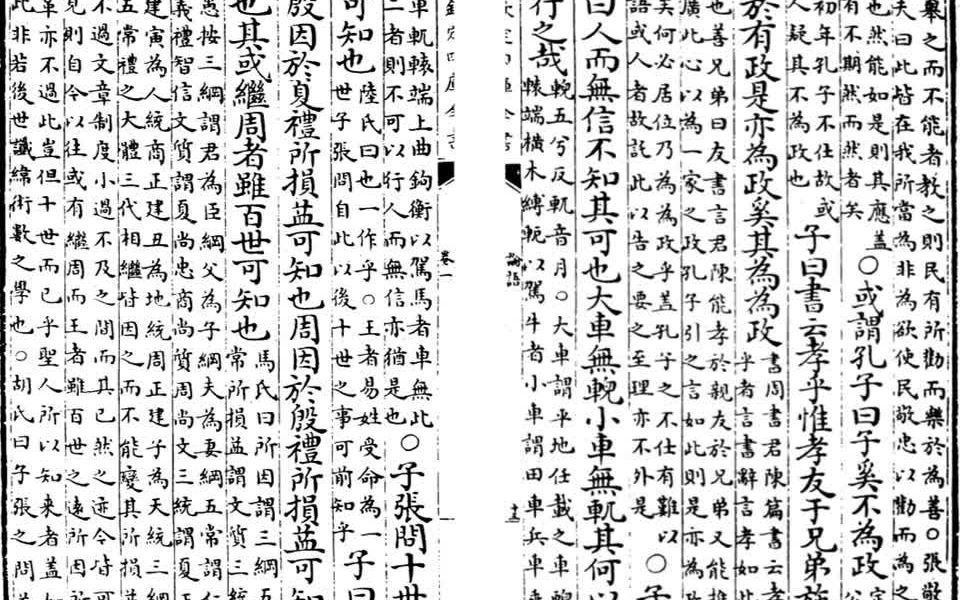 舉之而不能者教之則民有所勸而樂於為善○張敬
夫曰此皆在我所當為非為欲使民敬忠以勸而為之
也然能如是則其應蓋
有不期然而然者矣
○或謂孔子曰子奚不為政定
初年孔子不仕故或
人疑其不為政也
子曰書云孝乎惟孝友于兄弟施
於有政是亦為政奚其為為政
書周書君陳篇書云孝
乎者言書辭言孝如
也善兄弟曰友書言君陳能孝於親友於兄弟又能推
廣此心以為一家之政孔子引之言如此則是亦為政
矣何必居位乃為為政乎蓋孔子之不仕有難以
語或人者故託此以告之要之至理亦不外是
○子
曰人而無信不知其可也大車無輗小車無軏其何以
行之哉
輗五兮反軏音月○大車謂平地任載之車輗
轅端橫木縛軛以駕牛者小車謂田車兵車乘
欽定四庫全書
論語
卷一
十三
車軏轅端上曲鉤衡以駕馬者車無此
二者則不可以行人而無信亦猶是也
○子張問十世
可知也
陸氏曰也一作乎○王者易姓受命為一
世子張問自此以後十世之事可前知乎
子曰
殷因於夏禮所損益可知也周因於殷禮所損益可知
也其或繼周者雖百世可知也
馬氏曰所因謂三綱五
常所損益謂文質三統
愚按三綱謂君為臣綱父為子綱夫為妻綱五常謂仁
義禮智信文質謂夏尚忠商尚質周尚文三統謂夏正
建寅為人統商正建丑為地統周正建子為天統三綱
五常禮之大體三代相繼皆因之而不能變其所損益
不過文章制度小過不及之間而其已然之迹今皆可
見則自今以往或有繼周而王者雖百世之遠所因所
革亦不過此豈但十世而已乎聖人所以知來者蓋如
此非若後世讖緯術數之學也○胡氏曰子張之問蓋